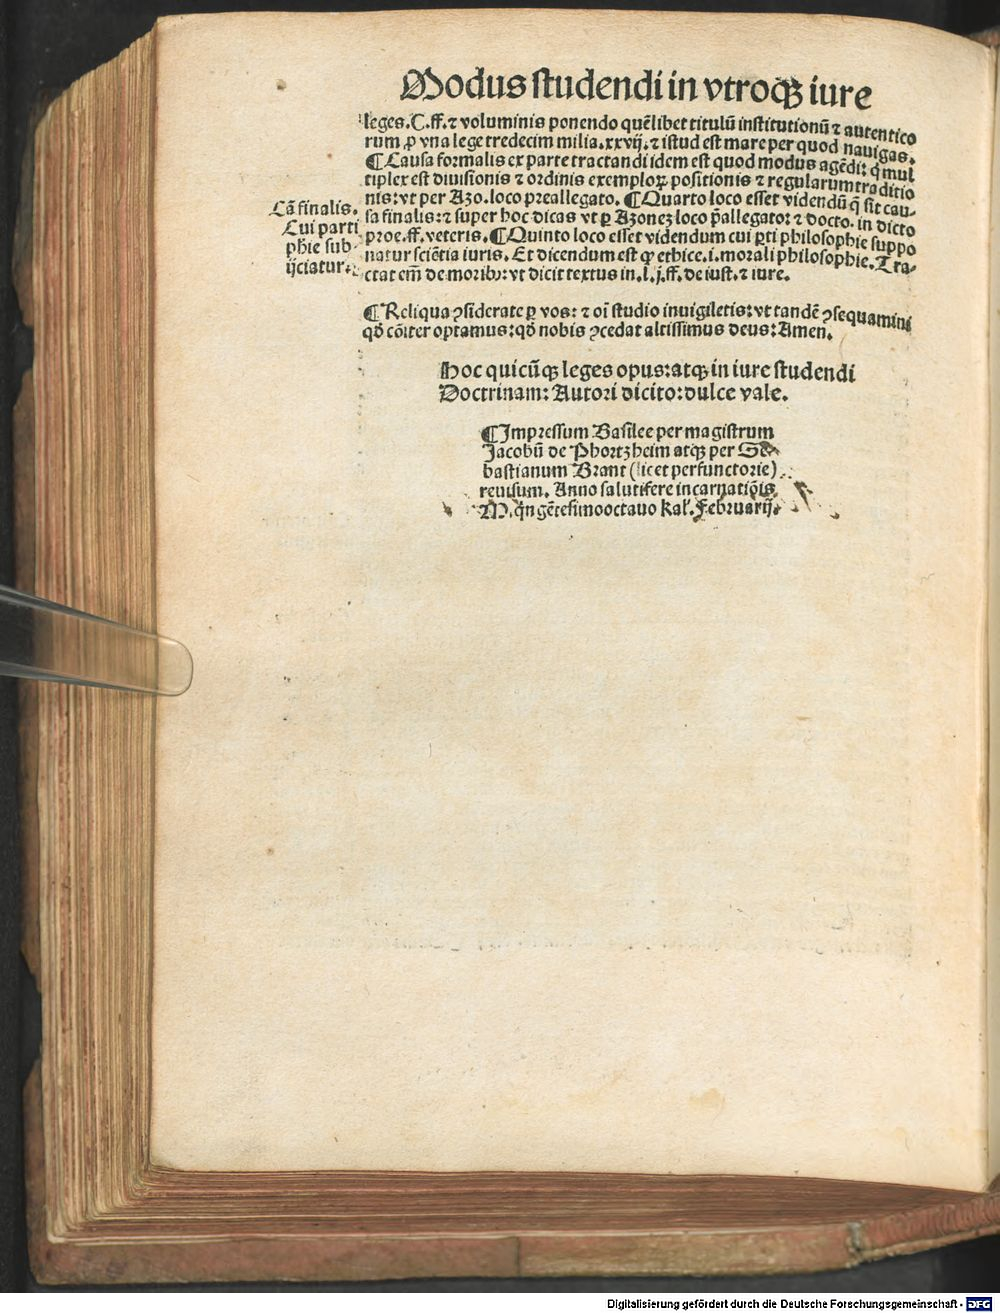 Modus studendi in vtroqꝫ iure
leges.C.ff.⁊ voluminis ponendo quēlibet titulū institutionū ⁊ autentico
rum ꝓ vna lege tredecim milia.xxvij.⁊ istud est mare per quod nauigas.
¶Causa formalis ex parte tractandi idem est quod modus agēdi: q̇ mul
tiplex est diuisionis ⁊ ordinis exemploꝝ positionis ⁊ regularum traditio
nis: vt per Azo.loco preallegato. ¶Quarto loco esset videndū q̄ sit cau-
sa finalis: ⁊ super hoc dicas vt ꝑ Azonez loco p̄allegato: ⁊ docto. in dicto
proe.ff.veteris.¶Quinto loco esset videndum cui ꝑti philosophie suppo
natur sciētia iuris. Et dicendum est ꝙ ethice.i.morali philosophie. Tra-
ctat em̄ de moribꝰ: vt dicit textus in.l.j.ff.de iust.⁊ iure.
Cā finalis.
Cui parti
phie sub-
ijciatur.
¶Reliqua ꝯsiderate ꝑ vos: ⁊ oī studio inuigiletis: vt tandē ꝯsequamini
qd̄ cōiter optamus: qd̄ nobis ꝯcedat altissimus deus: Amen.
Hoc quicūqꝫ leges opus: atqꝫ in iure studendi
Doctrinam: Autori dicito: dulce vale.
¶Impressum Basilee per magistrum
Jacobū de Phortzheim atqꝫ per Se
bastianum Brant (licet perfunctorie)
reuisum. Anno salutifere incarnatiōis
M.q̇ngētesimooctauo kal. Februarij.
Digitalisierung gefördert durch die Deutsche Forschungsgemeinschaft - DFG